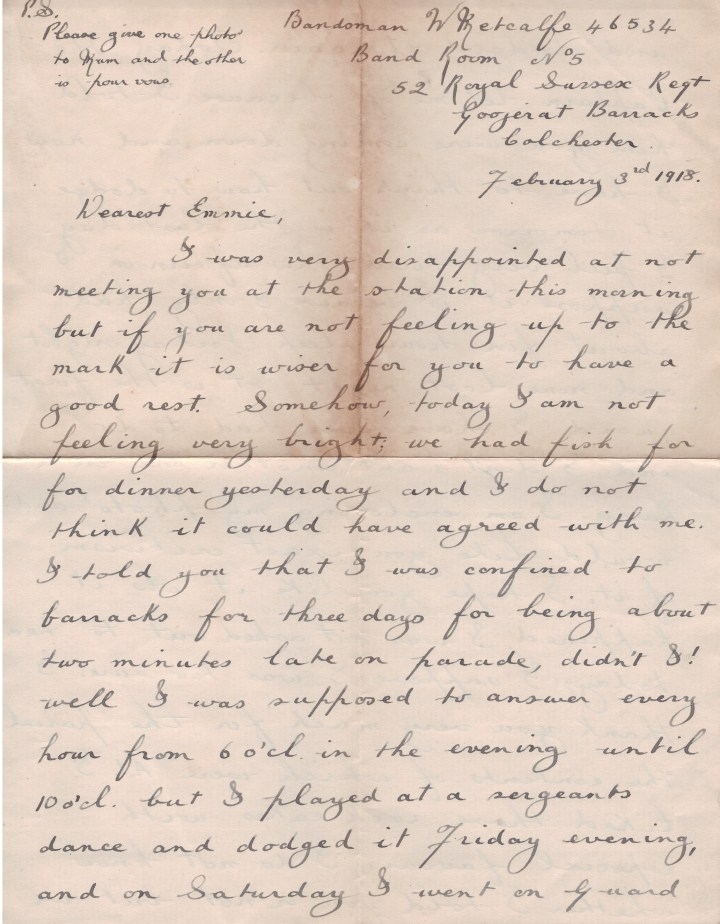 P.S.
Please give one photo
to Mum and the other
is pour vous.
Bandsman W Metcalfe 46534
Band Room No 5
52 Royal Sussex Regt
Goojerat Barracks
Colchester.
February 3rd 1918.
Dearest Emmie,
I was very disappointed at not
meeting you at the station this morning
but if you are not feeling up to the
mark it is wiser for you to have a
good rest. Somehow, today I am not
feeling very bright; we had fish for
for dinner yesterday and I do not
think it could have agreed with me.
I told you that I was confined to
barracks for three days for being about
two minutes late on parade, didn't I!
well I was supposed to answer every
hour from 6 o'cl. in the evening until
10 o'cl. but I played at a sergeants
dance and dodged it Friday evening,
and on Saturday I went on Guard